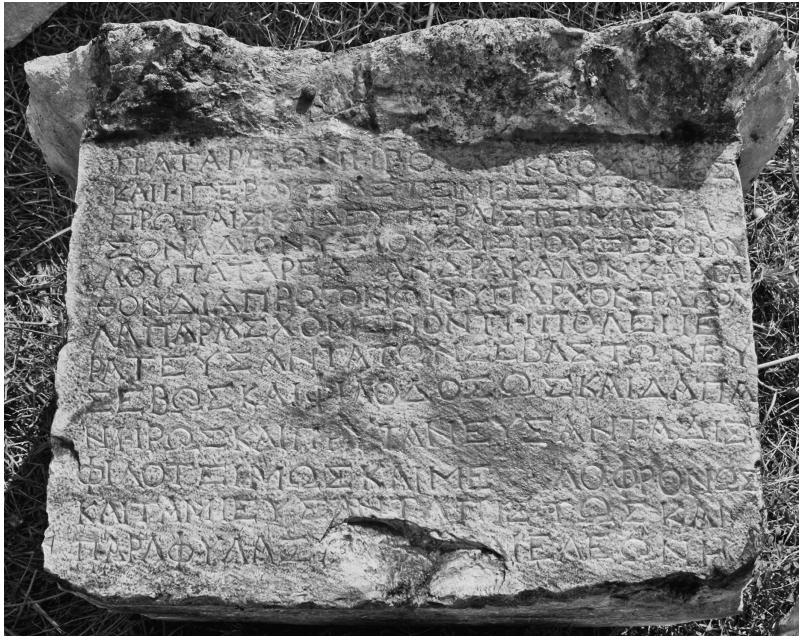 ΠΑΤΑΡΕΩΝ ΚΑΙ Ο ΔΗΜΟΣ
ΚΑΙ Η ΓΕΡΟΥΣΙΑ ΕΤΕΙΜΗΣΕΝ ΤΑΙΣ
ΠΡΩΤΑΙΣ ΚΑΙ ΔΕΥΤΕΡΑΙΣ ΤΕΙΜΑΙΣ ΙΑ
ΣΟΝΑ ΔΙΟΝΥΣΙΟΥ ΔΙΣ ΤΟΥ ΞΕΝΟΒΟΥ
ΛΟΥ ΠΑΤΑΡΕΑ ΑΝΔΡΑ ΚΑΛΟΝ ΚΑΙ ΑΓΑ
ΘΟΝ ΔΙΑ ΠΡΟΓΟΝΩΝ ΥΠΑΡΧΟΝΤΑ ΠΟΛ
ΛΑ ΠΑΡΑΣΧΟΜΕΝΟΝ ΤΗ ΠΟΛΕΙ ΙΕ
ΡΑΤΕΥΣΑΝΤΑ ΤΩΝ ΣΕΒΑΣΤΩΝ ΕΥ
ΣΕΒΩΣ ΚΑΙ ΦΙΛΟΔΟΞΩΣ ΚΑΙ ΔΑΠΑ
ΝΗΡΩΣ ΚΑΙ ΠΡΥΤΑΝΕΥΣΑΝΤΑ ΔΙΣ
ΦΙΛΟΤΕΙΜΩΣ ΚΑΙ ΜΕ ΛΟΦΡΟΝΩΣ
ΚΑΙ ΤΑΜΙΕΥΣΑΝΤΑ ΠΙΣΤΩΣ ΚΑΙ
ΠΑΡΑΦΥΛΑΞ